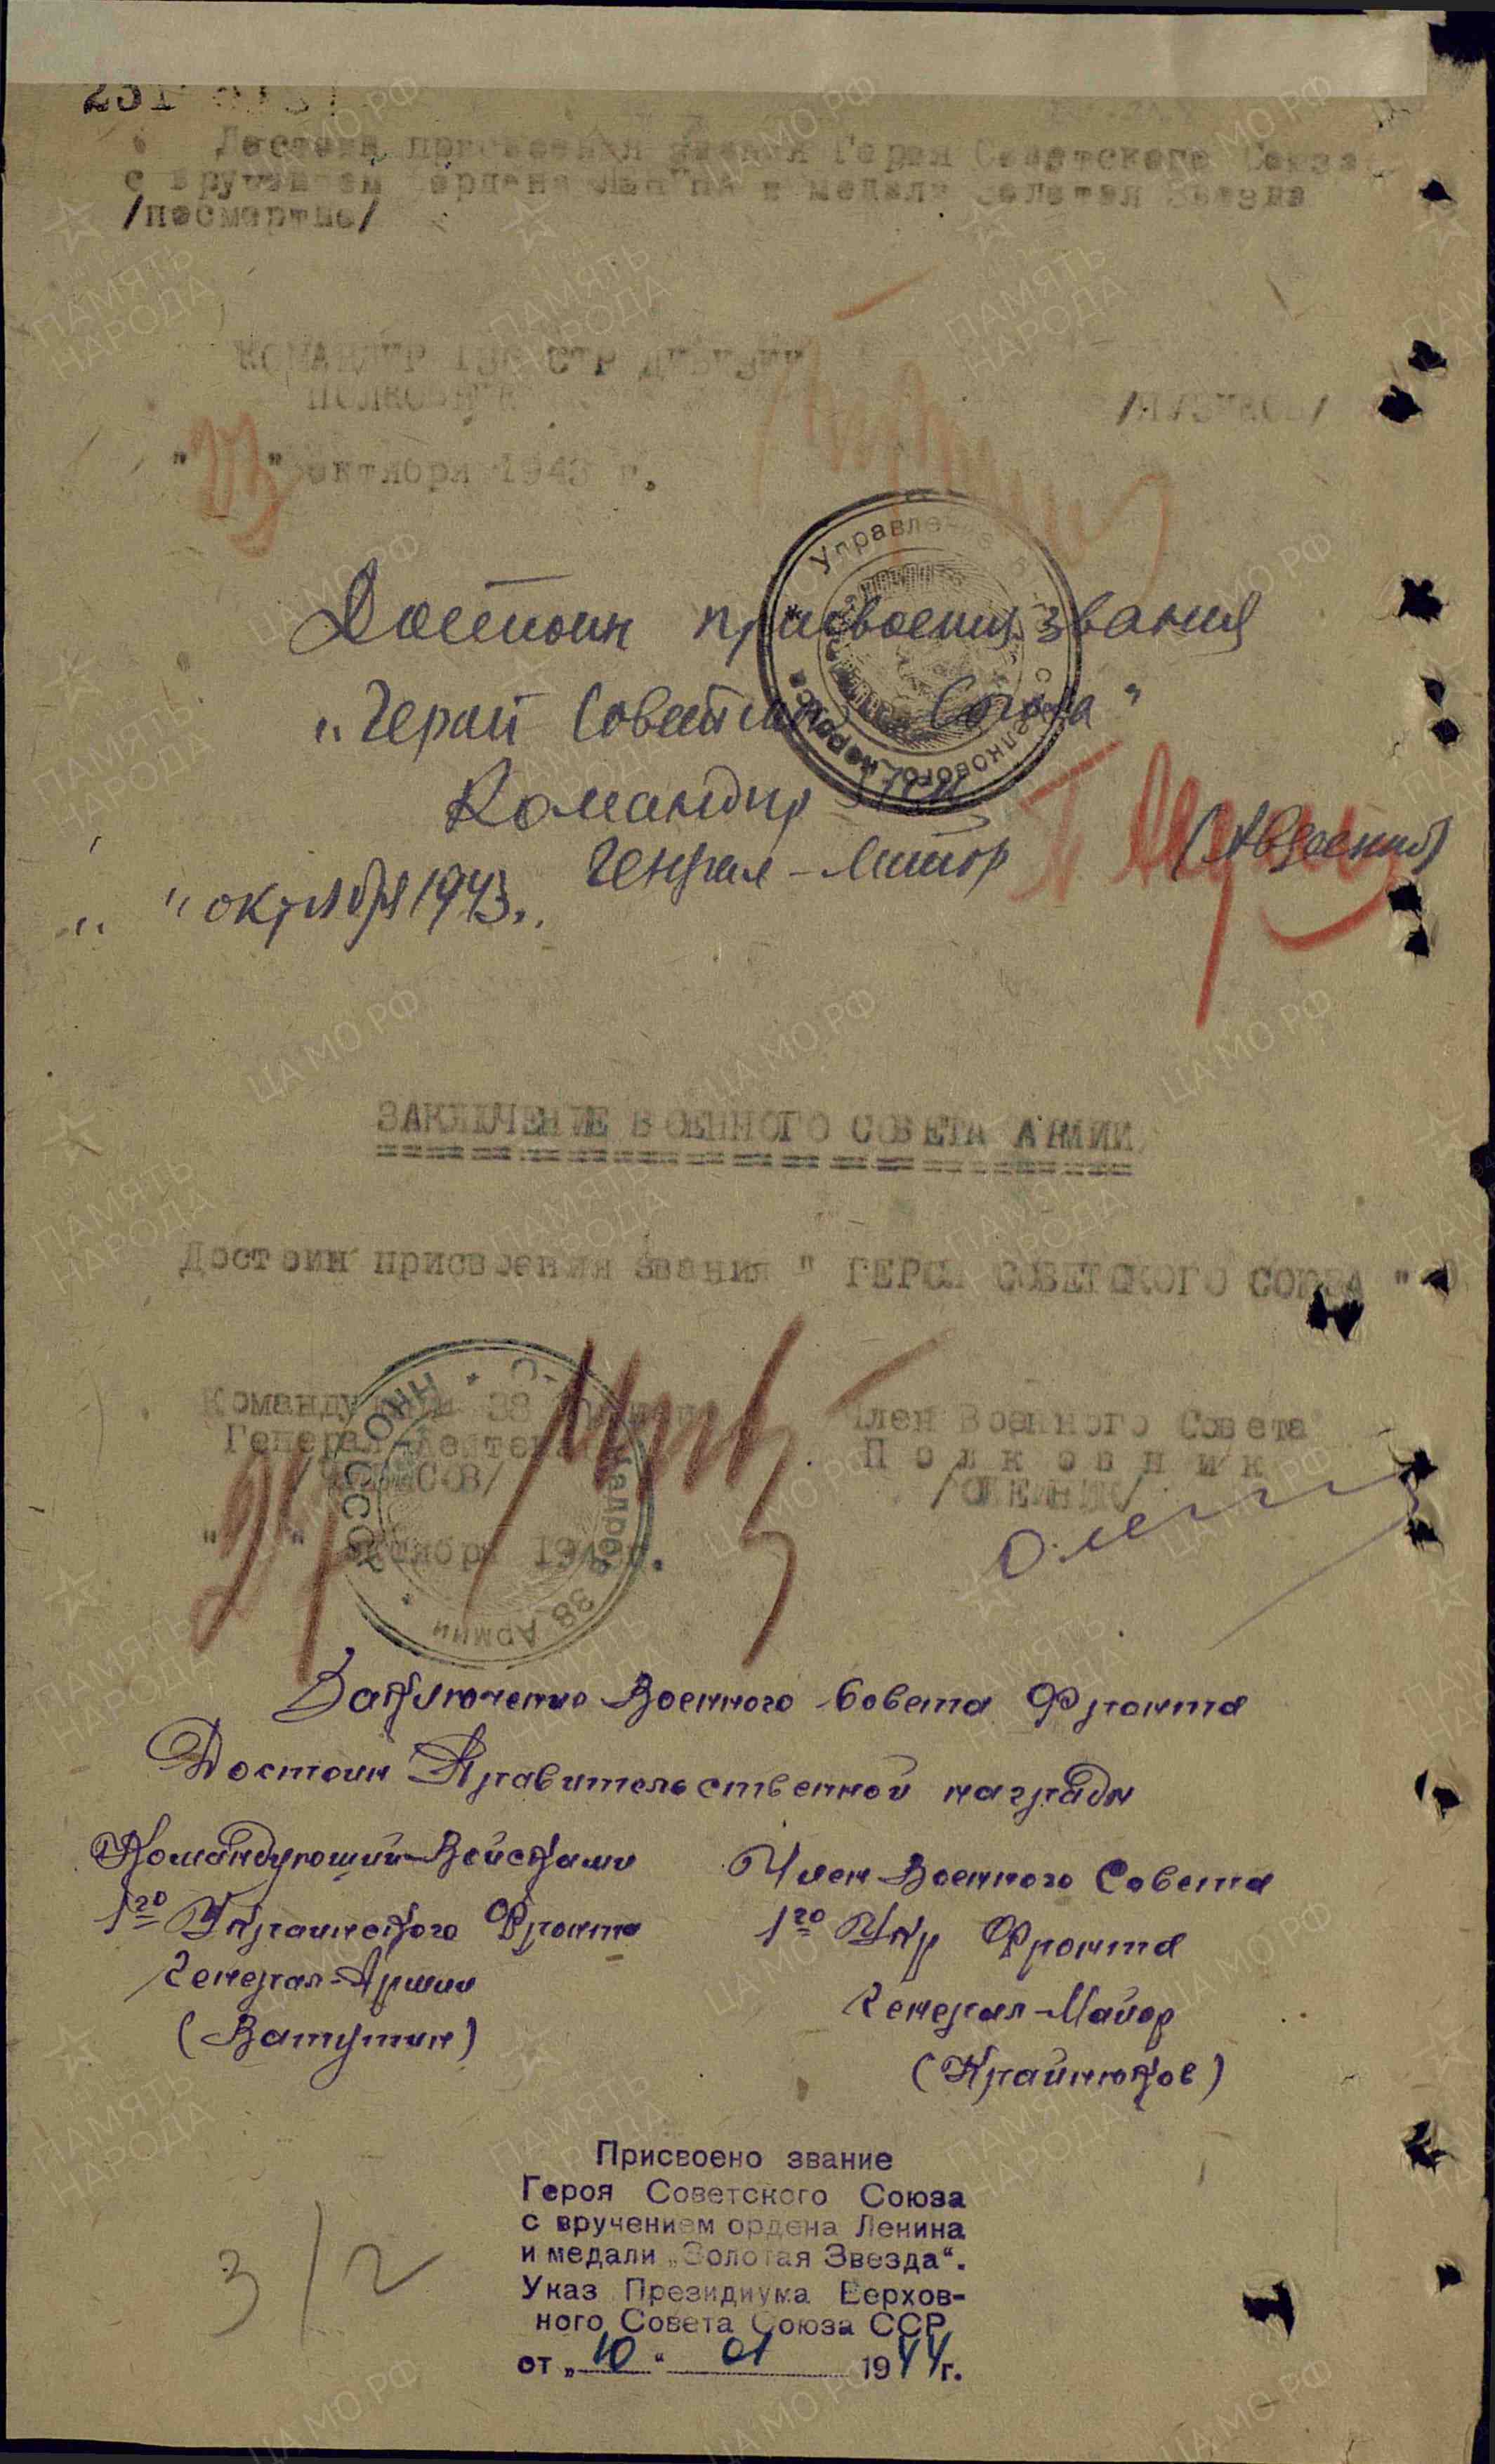 Достоин присвоения звания Героя Советского Союза
с вручением ордена Ленина и медали Золотая Звезда
/посмертно/
КОМАНДИР СТР ДИВИЗИИ
ПОЛКОВНИК
"23" октября 1943 г.
Достоин присвоения звания
„Герой Советского Союза"
Командир
Генерал-Майор (Авдеенко)
" " октября 1943г.
ЗАКЛЮЧЕНИЕ ВОЕННОГО СОВЕТА АРМИИ
Достоин присвоения звания " ГЕРОЯ СОВЕТСКОГО СОЮЗА "
Командующий 38 Армией Член Военного Совета
Генерал-Лейтенант Полковник
/ОЛЕЙНИК/
" " октября 194
Заключение Военного Совета Фронта
Достоин Правительственной награды
Командующий Войсками Член Военного Совета
1го Украинского Фронта 1го Укр Фронта
Генерал-Армии Генерал-Майор
(Ватутин) (Крайнюков)
Присвоено звание
Героя Советского Союза
с вручением ордена Ленина
и медали „Золотая Звезда“.
Указ Президиума Верхов-
ного Совета Союза ССР
от „10“ 01 1944г.
3/2